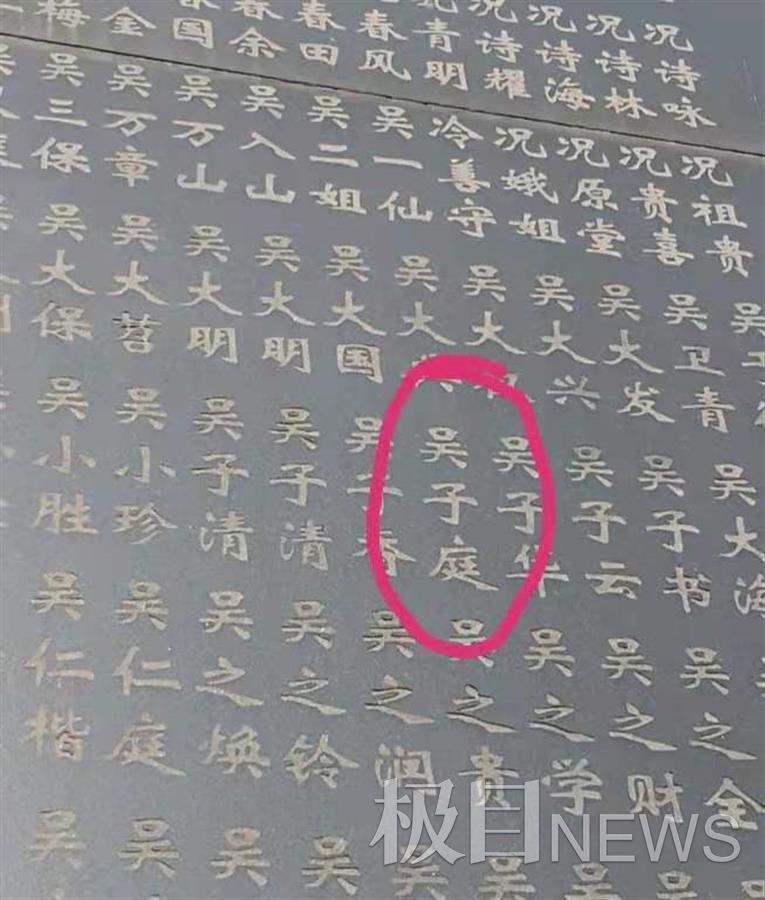 况诗咏
况诗林
况诗海
况诗耀
青明
春风
春田
春余
国
金
梅
况祖贵
况贵喜
况原堂
况娥姐
冷善守
吴一仙
吴二姐
吴入山
吴万山
吴万章
吴三保
吴卫青
吴大发
吴大兴
吴大
吴大
吴大国
吴大明
吴大明
吴大
吴大保
吴大海
吴子书
吴子云
吴子华
吴子庭
吴子
吴子清
吴子清
吴小珍
吴小胜
吴之全
吴之财
吴之学
吴之贵
吴之润
吴之铃
吴之焕
吴仁庭
吴仁楷
吴
吴
吴
吴
吴
吴
吴
吴
极目NEWS